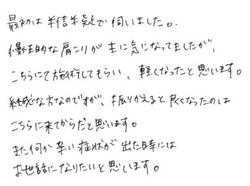 最初は半信半疑で伺いました。
慢性的な肩こりが主に気になってましたが、
こちらにて施術してもらい、軽くなったと思います。
純粋な方なのですが、振りかえると良くなったのは
こちらに来てからだと思います。
また何か辛い症状が出た時には
お世話になりたいと思います。